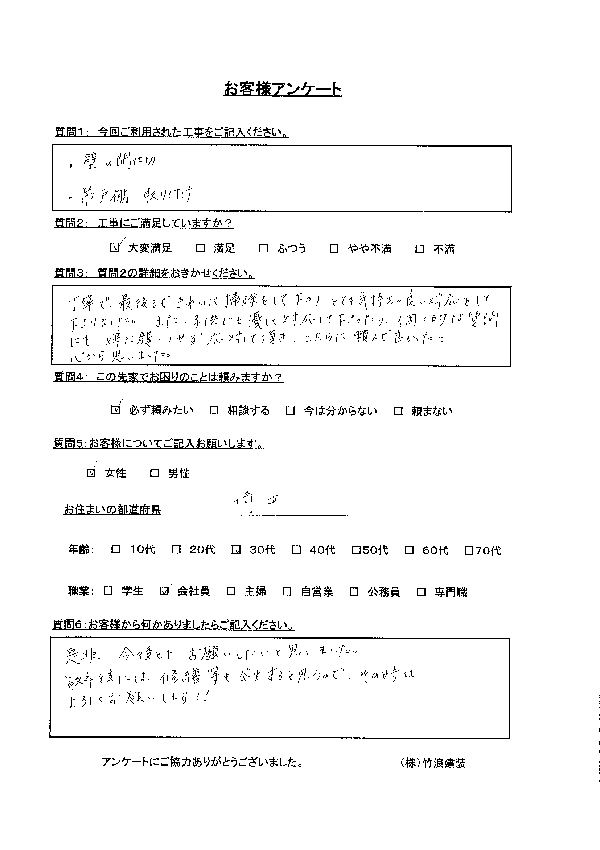 お客様アンケート
質問1: 今回ご利用された工事をご記入ください。
・壁の間仕切
・吊戸棚 取り付け
質問2: 工事にご満足していますか?
☑ 大変満足 □ 満足 □ ふつう □ やや不満 □ 不満
質問3: 質問2の詳細をおきかせください。
丁寧で、最後まできれいに掃除をして下さり とても気持ちの良い対応をして
下さいました。また、子供にも優しく対応して下さったり、
にも 対応して頂き、こちらに頼んで良かったと
心から思いました。
質問4: この先家でお困りのことは頼みますか?
☑ 必ず頼みたい □ 相談する □ 今は分からない □ 頼まない
質問5:お客様についてご記入お願いします。
☑ 女性 □ 男性
お住まいの都道府県
年齢: □ 10代 □ 20代 ☑ 30代 □ 40代 □50代 □ 60代 □70代
職業: □ 学生 ☑ 会社員 □ 主婦 □ 自営業 □ 公務員 □ 専門職
質問6:お客様から何かありましたらご記入ください。
是非、今後とも お願いしたいと思いました。
数年後には、修繕等も発生すると思うので、その時は
よろしくお願いします!!
アンケートにご協力ありがとうございました。 (株)竹浪建装